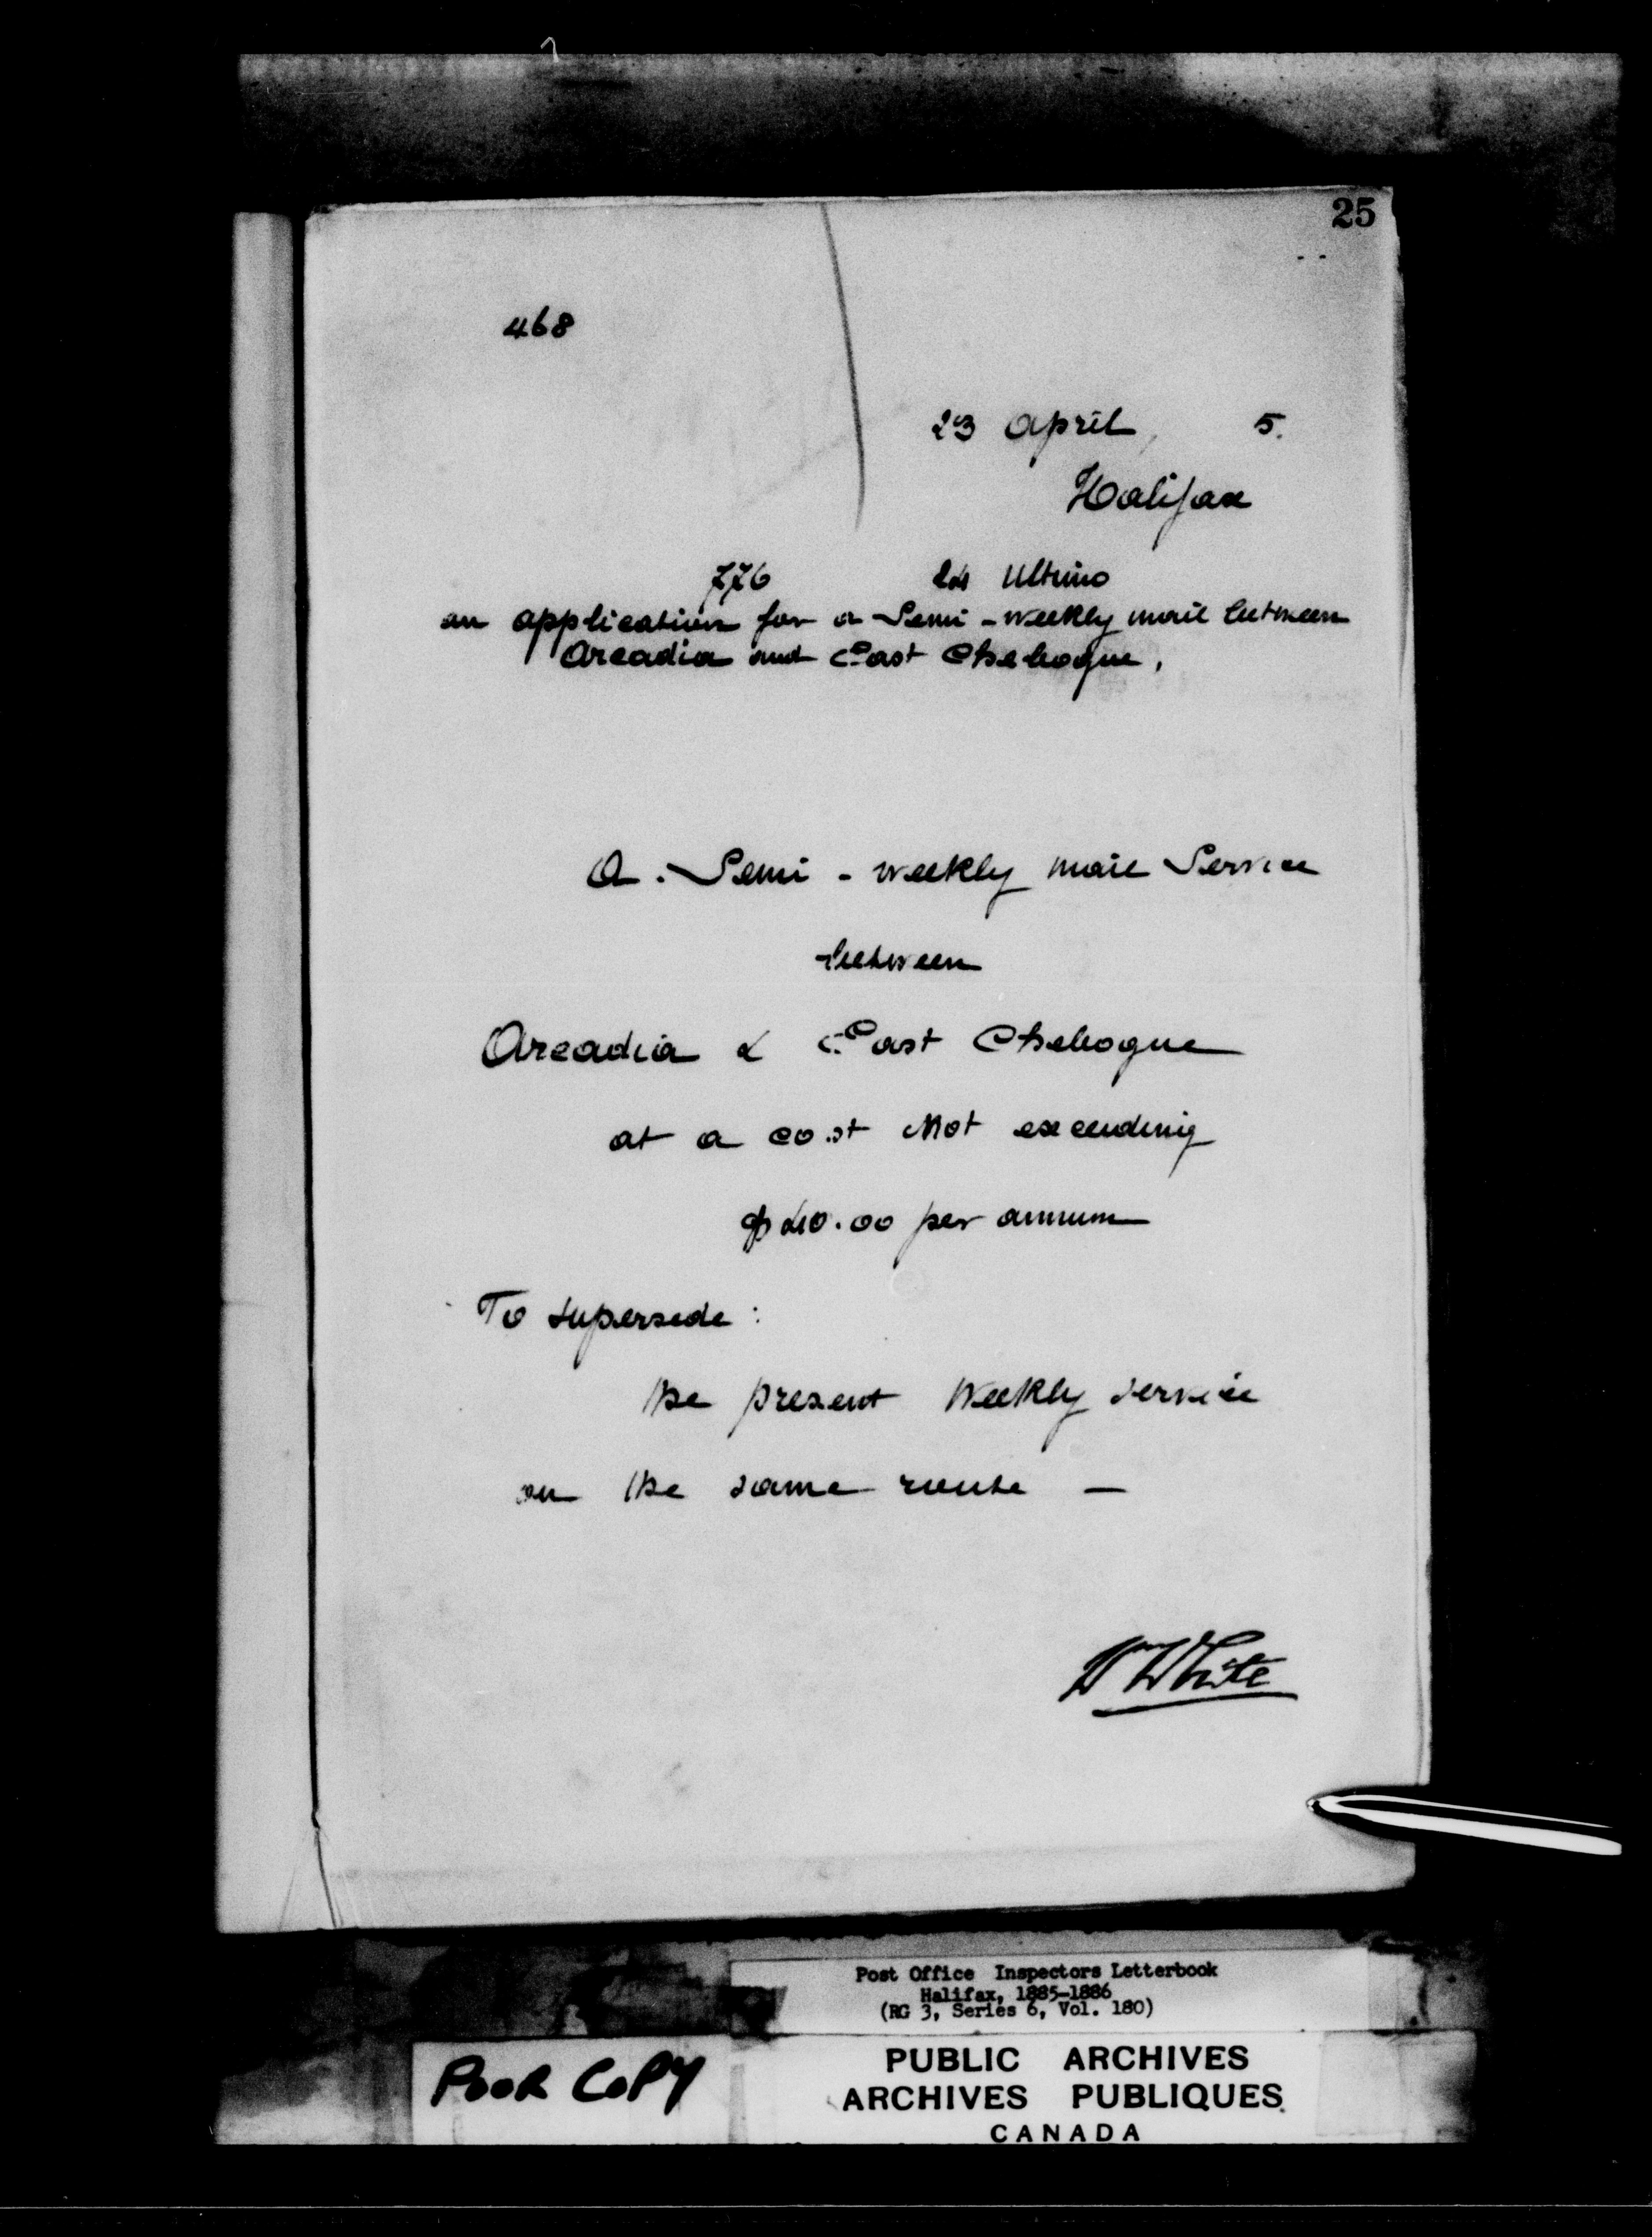 25
468
23 April, 5.
Halifax
776 24 Ultimo
an application for a Semi-weekly mail between
Arcadia and East Chebogue,
A. Semi-weekly mail Service
between
Arcadia & East Chebogue
at a cost Not exceeding
$40.00 per annum
To supersede:
the present Weekly service
on the same route —
Wm White
Post Office Inspectors Letterbook
Halifax, 1885-1886
(RG 3, Series 6, Vol. 180)
POOR COPY
PUBLIC ARCHIVES
ARCHIVES PUBLIQUES
CANADA